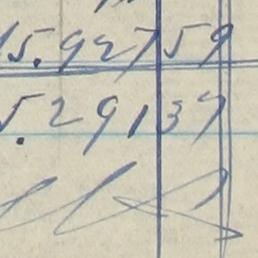 15.92759
5.29137